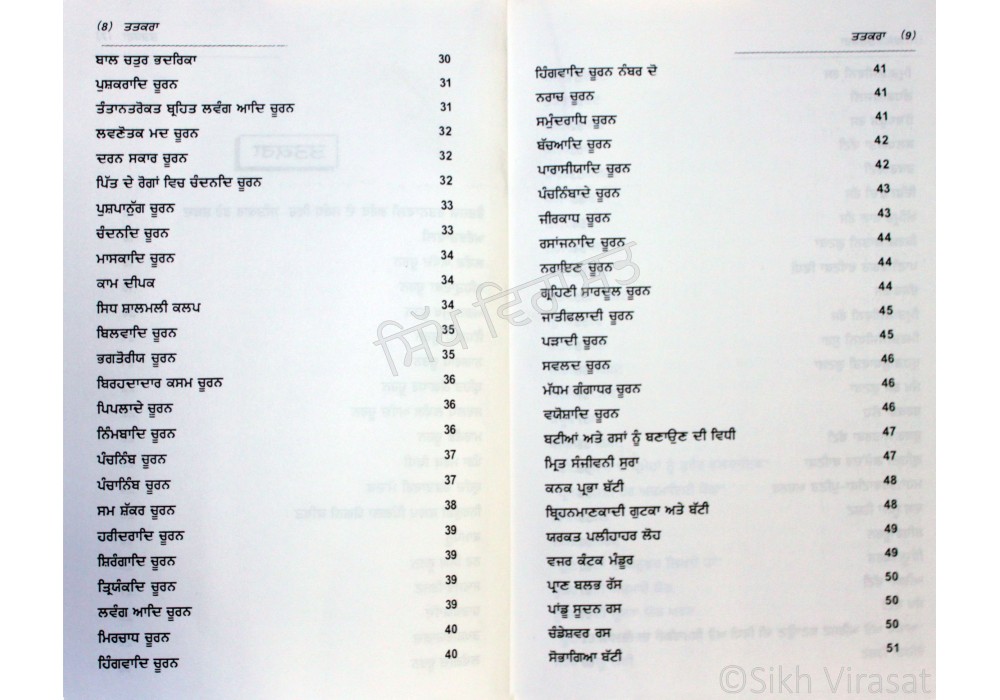 (8) ਤਤਕਰਾ
ਬਾਲ ਚਤੁਰ ਭਦਰਿਕਾ 30
ਪੁਸ਼ਕਰਾਦਿ ਚੂਰਨ 31
ਤੰਤਾਨਤਰੋਕਤ ਬ੍ਰਹਿਤ ਲਵੰਗ ਆਦਿ ਚੂਰਨ 31
ਲਵਣੋਤਕ ਮਦ ਚੂਰਨ 32
ਦਰਨ ਸਕਾਰ ਚੂਰਨ 32
ਪਿੱਤ ਦੇ ਰੋਗਾਂ ਵਿਚ ਚੰਦਨਦਿ ਚੂਰਨ 32
ਪੁਸ਼ਪਾਨੁੱਗ ਚੂਰਨ 33
ਚੰਦਨਦਿ ਚੂਰਨ 33
ਮਾਸਕਾਦਿ ਚੂਰਨ 34
ਕਾਮ ਦੀਪਕ 34
ਸਿਧ ਸ਼ਾਲਮਲੀ ਕਲਪ 34
ਬਿਲਵਾਦਿ ਚੂਰਨ 35
ਭਗਤੋਰੀਯ ਚੂਰਨ 35
ਬਿਰਹਦਾਦਾਰ ਕਸਮ ਚੂਰਨ 36
ਪਿਪਲਾਦੇ ਚੂਰਨ 36
ਨਿੰਮਬਾਦਿ ਚੂਰਨ 36
ਪੰਚਨਿੰਬ ਚੂਰਨ 37
ਪੰਚਾਨਿੰਬ ਚੂਰਨ 37
ਸਮ ਸ਼ੱਕਰ ਚੂਰਨ 38
ਹਰੀਦਰਾਦਿ ਚੂਰਨ 39
ਸ਼ਿਰੰਗਾਦਿ ਚੂਰਨ 39
ਤ੍ਰਿਯੰਕਦਿ ਚੂਰਨ 39
ਲਵੰਗ ਆਦਿ ਚੂਰਨ 39
ਮਿਰਚਾਧ ਚੂਰਨ 40
ਹਿੰਗਵਾਦਿ ਚੂਰਨ 40
ਤਤਕਰਾ (9)
ਹਿੰਗਵਾਦਿ ਚੂਰਨ ਨੰਬਰ ਦੋ 41
ਨਰਾਚ ਚੂਰਨ 41
ਸਮੁੰਦਰਾਧਿ ਚੂਰਨ 41
ਬੱਚਆਦਿ ਚੂਰਨ 42
ਪਾਰਾਸੀਯਾਦਿ ਚੂਰਨ 42
ਪੰਚਨਿੰਬਾਦੇ ਚੂਰਨ 43
ਜੀਰਕਾਧ ਚੂਰਨ 43
ਰਸਾਂਜਨਾਦਿ ਚੂਰਨ 44
ਨਰਾਇਣ ਚੂਰਨ 44
ਗ੍ਰਹਿਣੀ ਸਾਰਦੂਲ ਚੂਰਨ 44
ਜਾਤੀਫਲਾਦੀ ਚੂਰਨ 45
ਪੜਾਦੀ ਚੂਰਨ 45
ਸਵਲਦ ਚੂਰਨ 46
ਮੱਧਮ ਗੰਗਾਧਰ ਚੂਰਨ 46
ਵਯੋਸ਼ਾਦਿ ਚੂਰਨ 46
ਬਟੀਆਂ ਅਤੇ ਰਸਾਂ ਨੂੰ ਬਣਾਉਣ ਦੀ ਵਿਧੀ 47
ਮ੍ਰਿਤ ਸੰਜੀਵਨੀ ਸੁਰਾ 47
ਕਨਕ ਪ੍ਰਭਾ ਬੱਟੀ 48
ਬ੍ਰਿਹਨਮਾਣਕਾਦੀ ਗੁਟਕਾ ਅਤੇ ਬੱਟੀ 48
ਯਰਕਤ ਪਲੀਹਾਹਰ ਲੋਹ 49
ਵਜਰ ਕੰਟਕ ਮੰਡੂਰ 49
ਪ੍ਰਾਣ ਬਲਭ ਰੱਸ 50
ਪਾਂਡੂ ਸੂਦਨ ਰਸ 50
ਚੰਡੇਸ਼ਵਰ ਰਸ 50
ਸੋਭਾਗਿਆ ਬੱਟੀ 51
ਸਿੱਖ ਵਿਰਾਸਤ
©Sikh Virasat